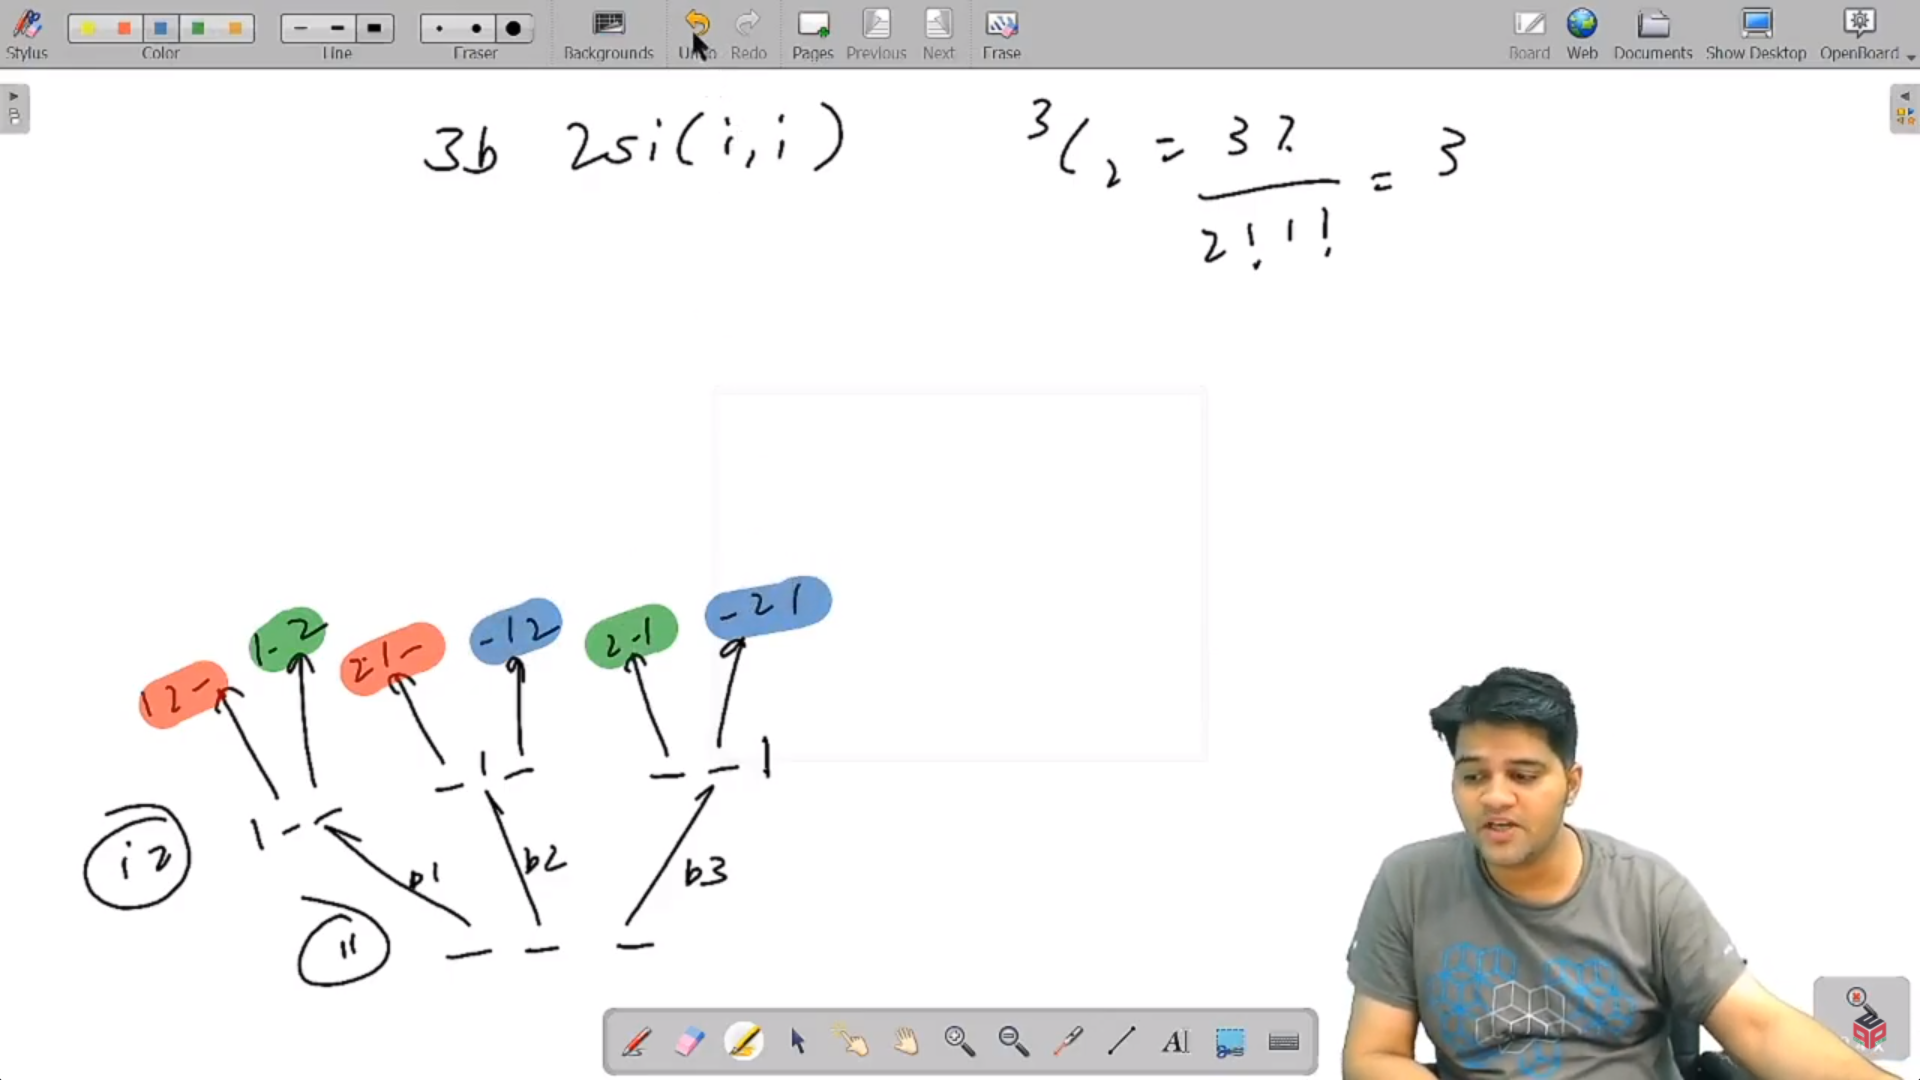 Stylus Color Line Eraser Backgrounds Undo Redo Pages Previous Next Erase Board Web Documents Show Desktop OpenBoard
3b 2si(i,i) ³C₂ = 3! / 2! 1! = 3
12- 1-2 21- -12 2-1 -21
1 - - - 1 - - - 1
i2 b1 b2 b3
i1 - - -